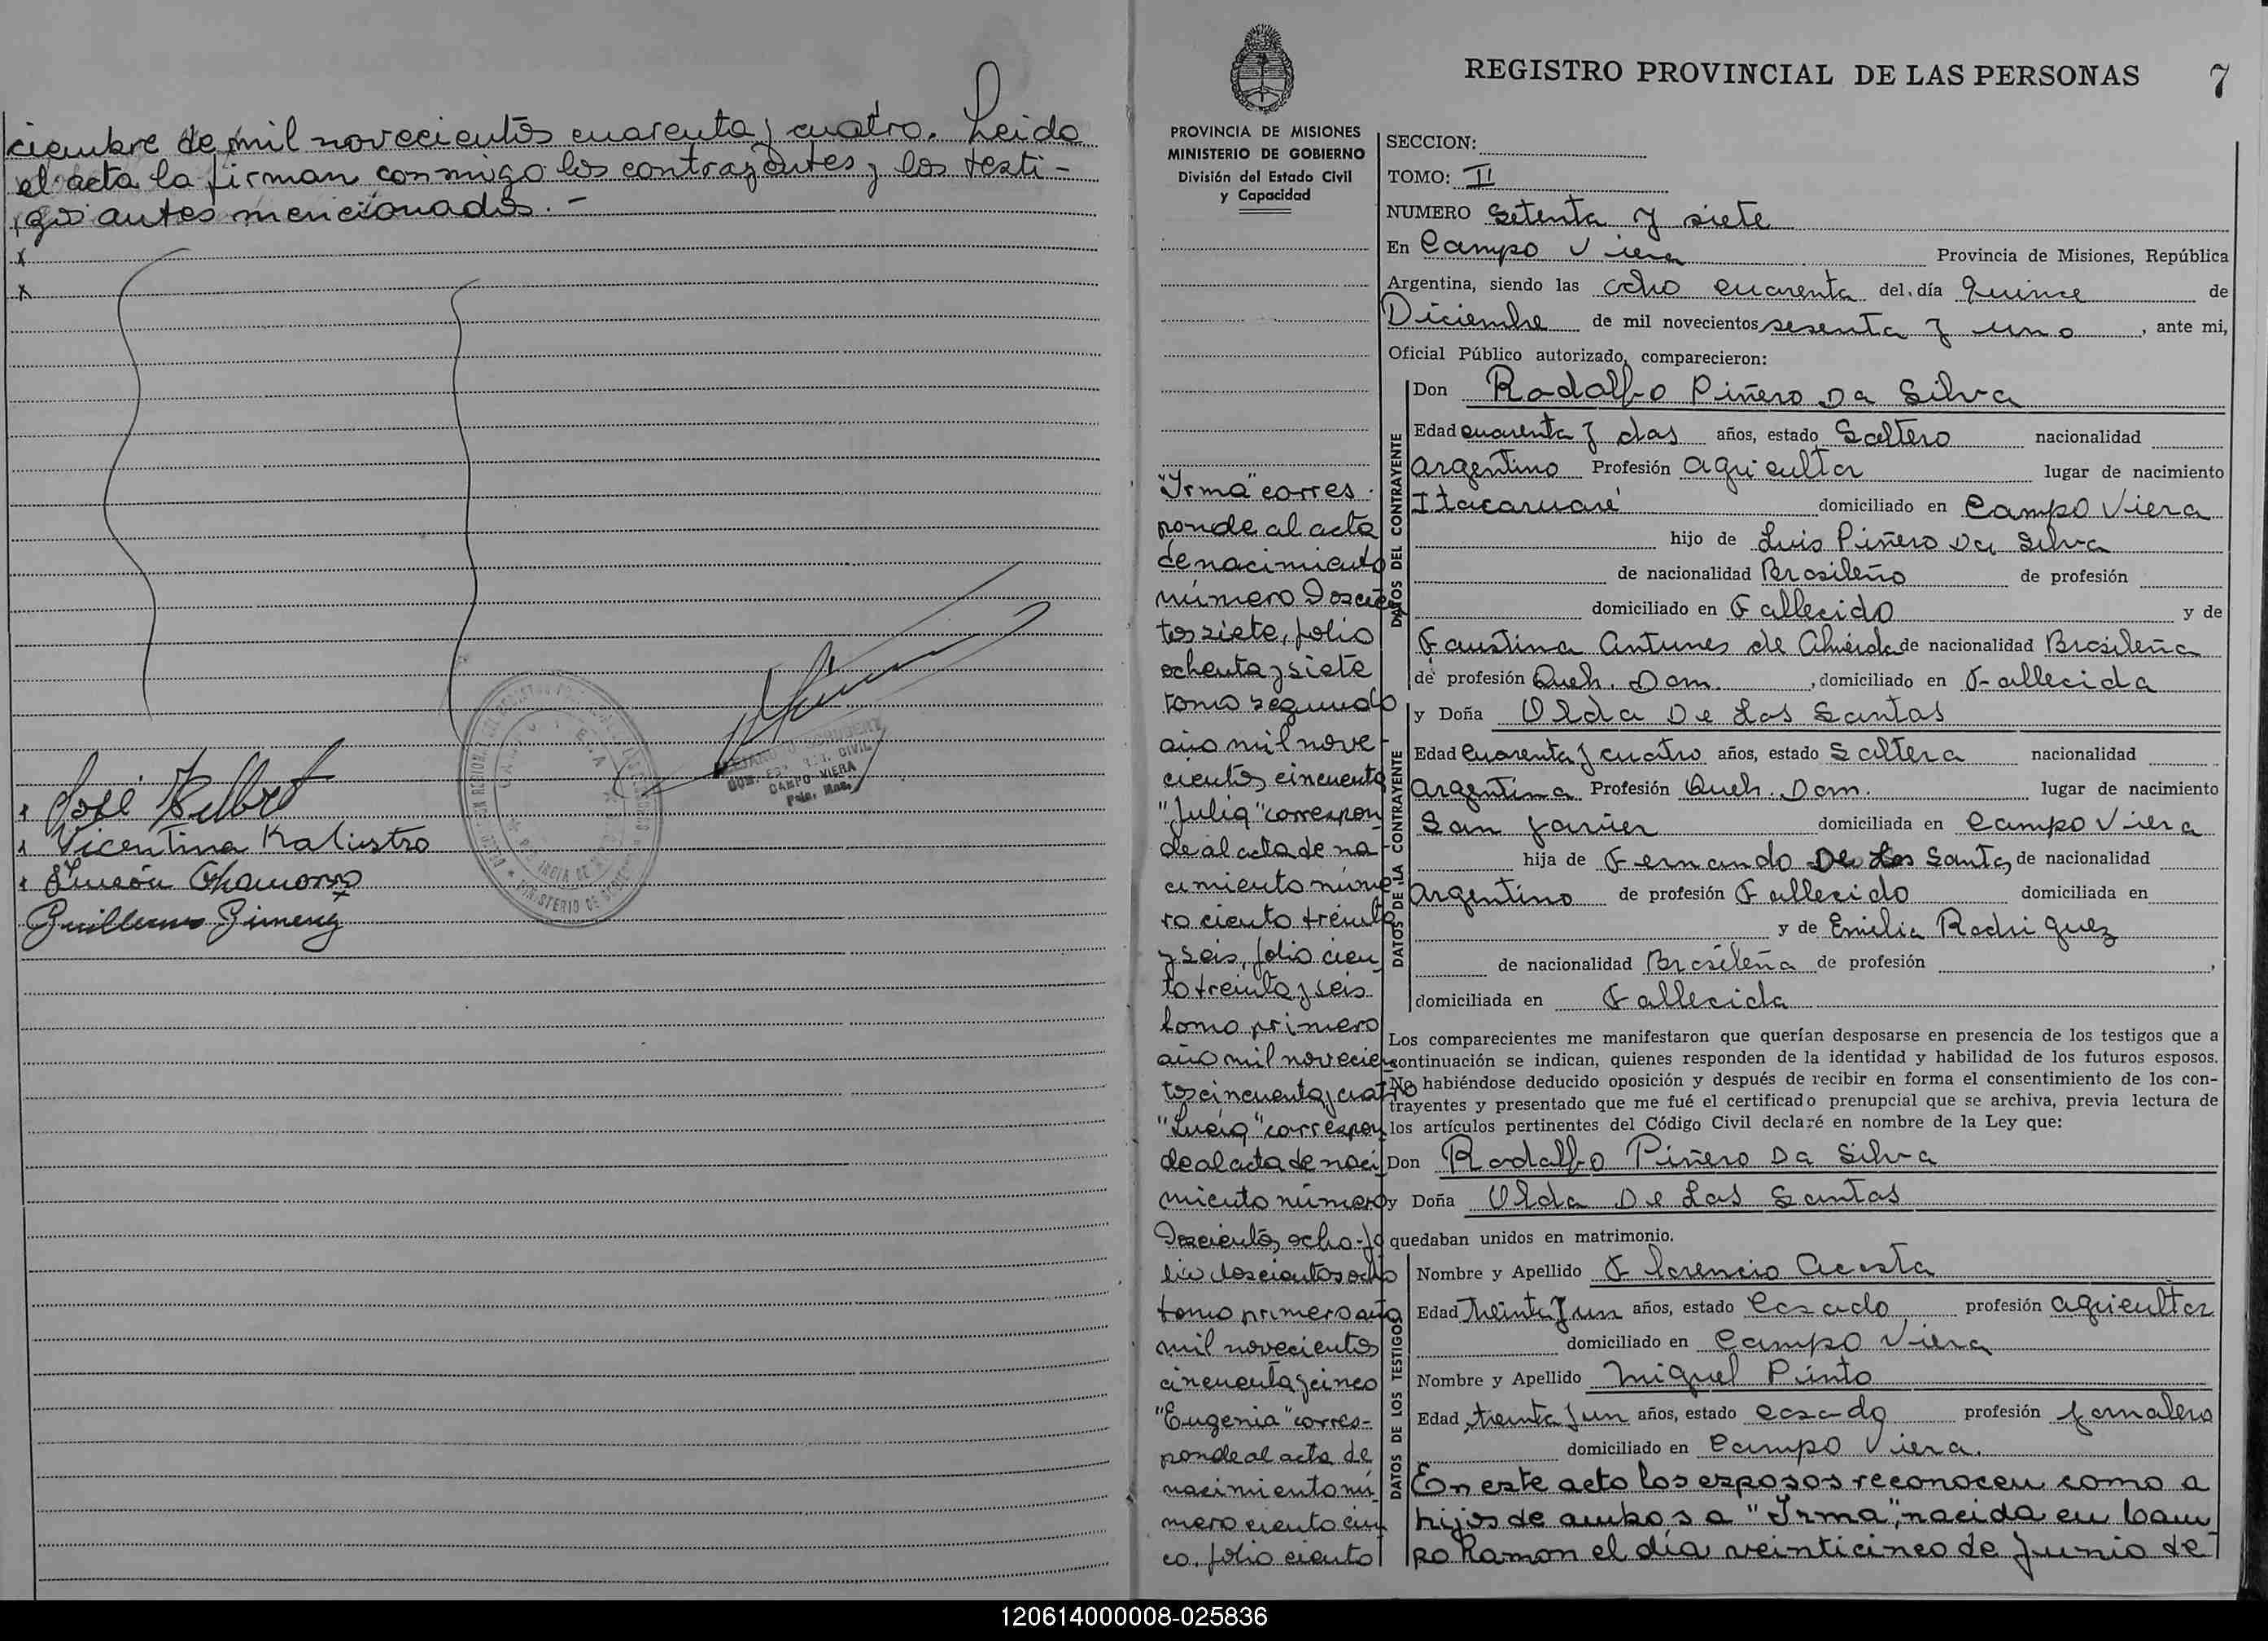 ciembre de mil novecientos cuarenta y cuatro. Leido
el acta la firman conmigo los contrayentes y los testi-
gos antes mencionados. -
x
x
CAMPO VIERA
José
Vicentina Kaliustro
Simeón Chamorro
Guillermo Gimenez
REGISTRO PROVINCIAL DE LAS PERSONAS 7
PROVINCIA DE MISIONES
MINISTERIO DE GOBIERNO
División del Estado Civil
y Capacidad
"Irma" corres
ponde al acta
de nacimiento
número Doscien
tos siete, folio
ochenta y siete
tomo segundo
año mil nove-
cientos cincuenta
"Julia" correspon
de al acta de na-
cimiento núme
ro ciento treinta
y seis, folio cien
to treinta y seis
tomo primero
año mil novecien
tos cincuenta y cuatro
"Lucia" correspon
de al acta de naci
miento número
Doscientos ocho-fo
lio doscientos ocho
tomo primero año
mil novecientos
cincuenta y cinco
"Eugenia" corres-
ponde al acta de
nacimiento nú
mero ciento cin
co, folio ciento
SECCION:
TOMO: II
NUMERO Setenta y siete
En Campo Viera Provincia de Misiones, República
Argentina, siendo las ocho cuarenta del día Quince de
Diciembre de mil novecientos sesenta y uno, ante mi,
Oficial Público autorizado, comparecieron:
DATOS DEL CONTRAYENTE
Don Rodolfo Piñero Da Silva
Edad cuarenta y dos años, estado Soltero nacionalidad
Argentino Profesión agricultor lugar de nacimiento
Itacaruaré domiciliado en Campo Viera
hijo de Luis Piñero Da Silva
de nacionalidad Brasileño de profesión
domiciliado en Fallecido y de
Faustina Antunes de Almeida de nacionalidad Brasileña
de profesión Queh. Dom., domiciliado en Fallecida
y Doña Olda De Los Santos
DATOS DE LA CONTRAYENTE
Edad Cuarenta y cuatro años, estado Soltera nacionalidad
Argentina Profesión Queh. Dom. lugar de nacimiento
San Javier domiciliada en Campo Viera
hija de Fernando De Los Santos de nacionalidad
Argentino de profesión Fallecido domiciliada en
y de Emilia Rodriguez
de nacionalidad Brasileña de profesión ,
domiciliada en Fallecida
Los comparecientes me manifestaron que querían desposarse en presencia de los testigos que a
continuación se indican, quienes responden de la identidad y habilidad de los futuros esposos.
No habiéndose deducido oposición y después de recibir en forma el consentimiento de los con-
trayentes y presentado que me fué el certificado prenupcial que se archiva, previa lectura de
los artículos pertinentes del Código Civil declaré en nombre de la Ley que:
Don Rodolfo Piñero Da Silva
y Doña Olda De Los Santos
quedaban unidos en matrimonio.
DATOS DE LOS TESTIGOS
Nombre y Apellido Florencio Acosta
Edad treinta y un años, estado Casado profesión agricultor
domiciliado en Campo Viera
Nombre y Apellido Miguel Pinto
Edad treinta y un años, estado casado profesión jornalero
domiciliado en Campo Viera.
En este acto los esposos reconocen como a
hijos de ambos a "Irma", nacida en Cam
po Ramon el día veinticinco de Junio de
120614000008-025836